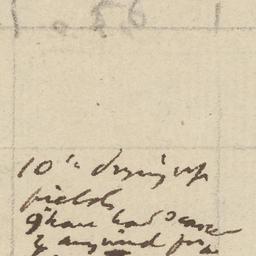 10th drying up
fields,
I have had scarce
ly any wind for a